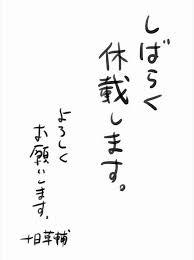 しばらく
休載します。
よろしく
お願いします。
十日草輔